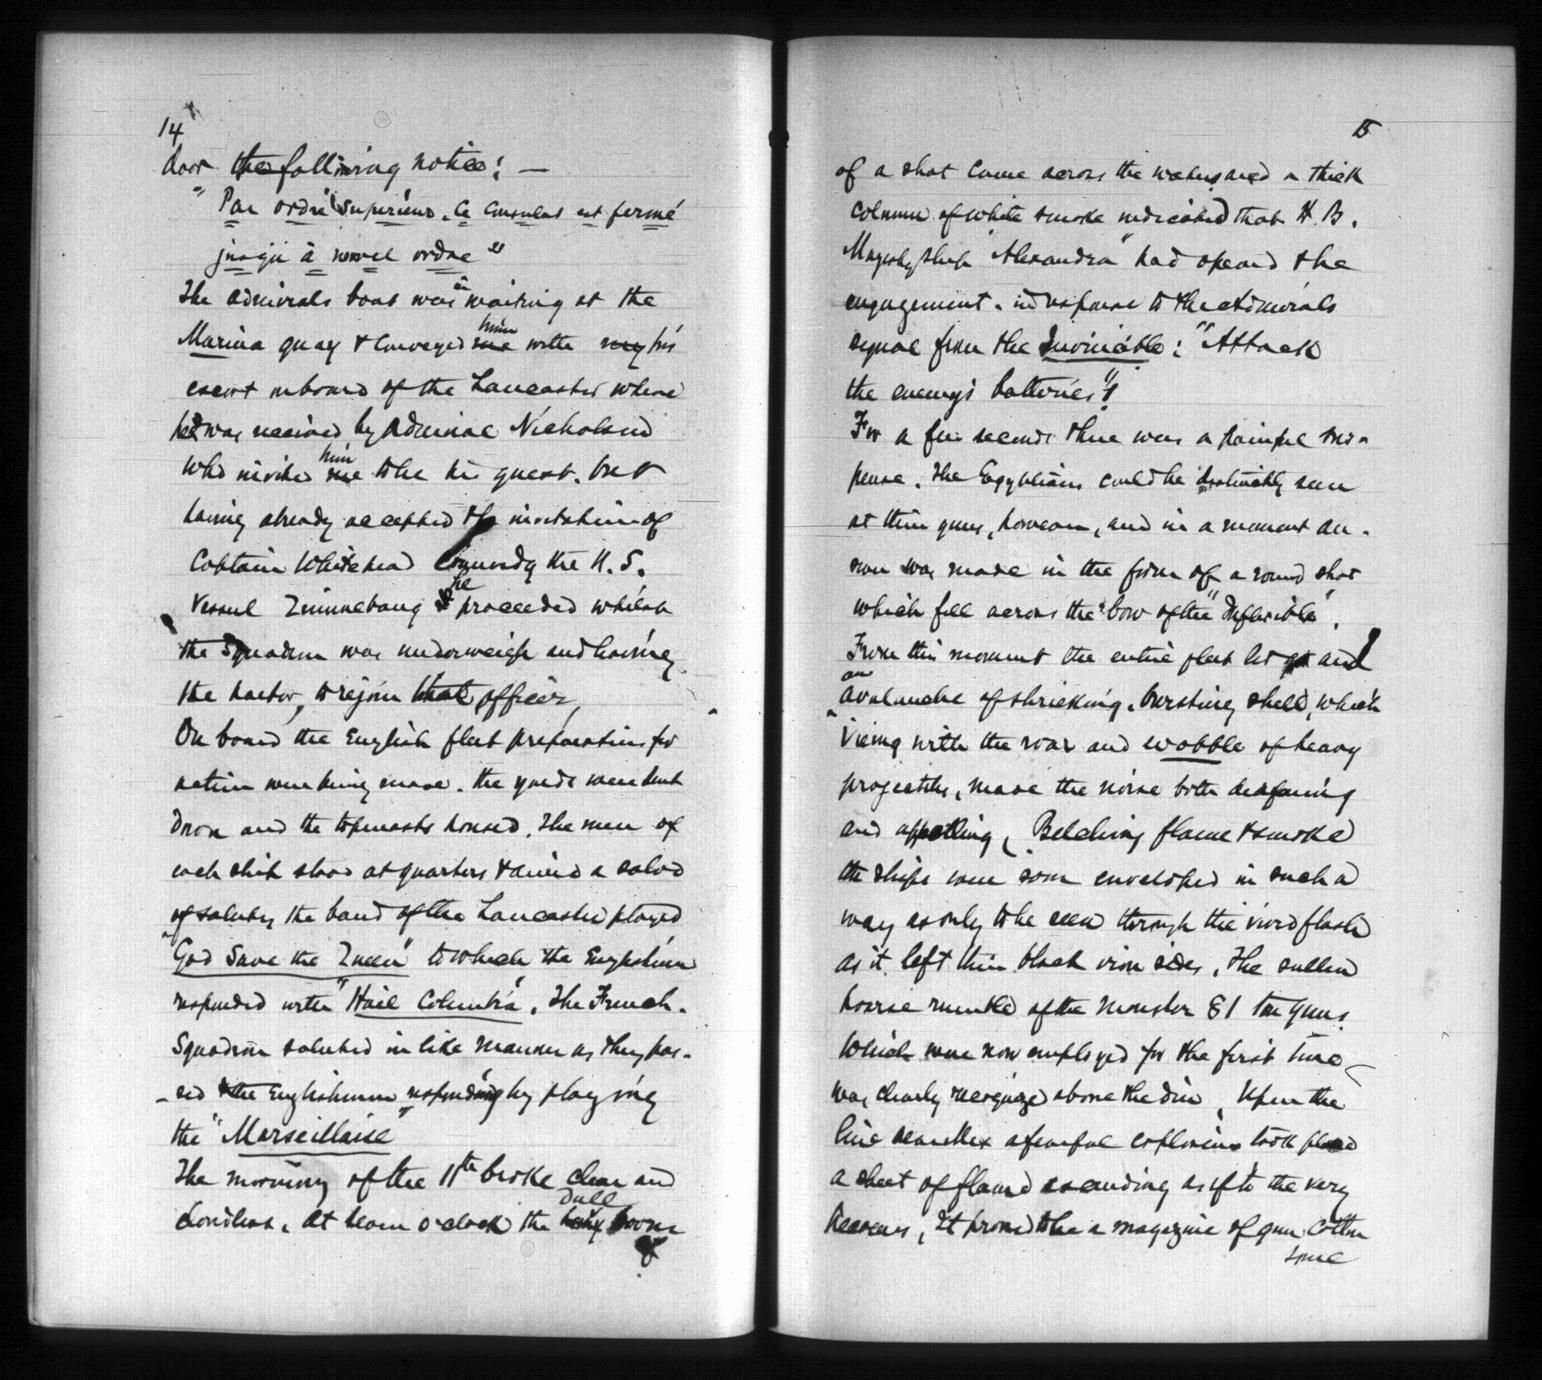 14
door the following notice: —
" Par ordre Superieur, Ce Consulat est fermé
jusqu' à novel ordre "
The Admirals boat was in waiting at the
Marina quay & conveyed me him with my his
escort onboard of the Lancaster where
he was received by Admiral Nicholson
who invited me him to be his guest. but
having already accepted the invitation of
Captain Whitehead Commandg the U. S.
Vessel Quinnebaug he proceeded whilst
the Squadron was underweigh and leaving
the harbor, to rejoin that officer,
On board the English fleet preparations for
action were being made. the yards were sent
down and the topmasts housed. The men of
each ship stood at quarters & amid a salvo
of salutes the band of the Lancaster played
"God Save the Queen" to which the Englishmen
responded with "Hail Columbia". The French
Squadron saluted in like manner as they pas-
-sed the Englishmen responding by playing
the "Marseillaise"
The morning of the 11th broke clear and
cloudless. At seven o'clock the heavy dull boom
of
15
of a shot came across the waters and a thick
column of white smoke indicated that H. B.
Majesty ship "Alexandra" had opened the
engagement. in response to the Admirals
signal from the Invincible: "Attack
the enemy's batteries"!
For a few seconds there was a painful sus-
pense. The Egyptians could be distinctly seen
at their guns, however, and in a moment an-
swer was made in the form of a round shot
which fell across the bow of the "Inflexible".
From this moment the entire fleet let go an
an avalanche of shrieking, bursting shell, which
vieing with the roar and wobble of heavy
projectiles, made the noise both deafening
and appalling, Belching flame & smoke
the ships were soon enveloped in such a
way as only to be seen through the vivid flash
as it left their black iron sides. The sullen
hoarse rumble of the monster 81 ton guns
which were now employed for the first time
was clearly recognized above the din. Upon the
line near Mex a fearful explosion took place
a sheet of flame ascending as if to the very
heavens, It proved to be a magazine of gun Cotton
some